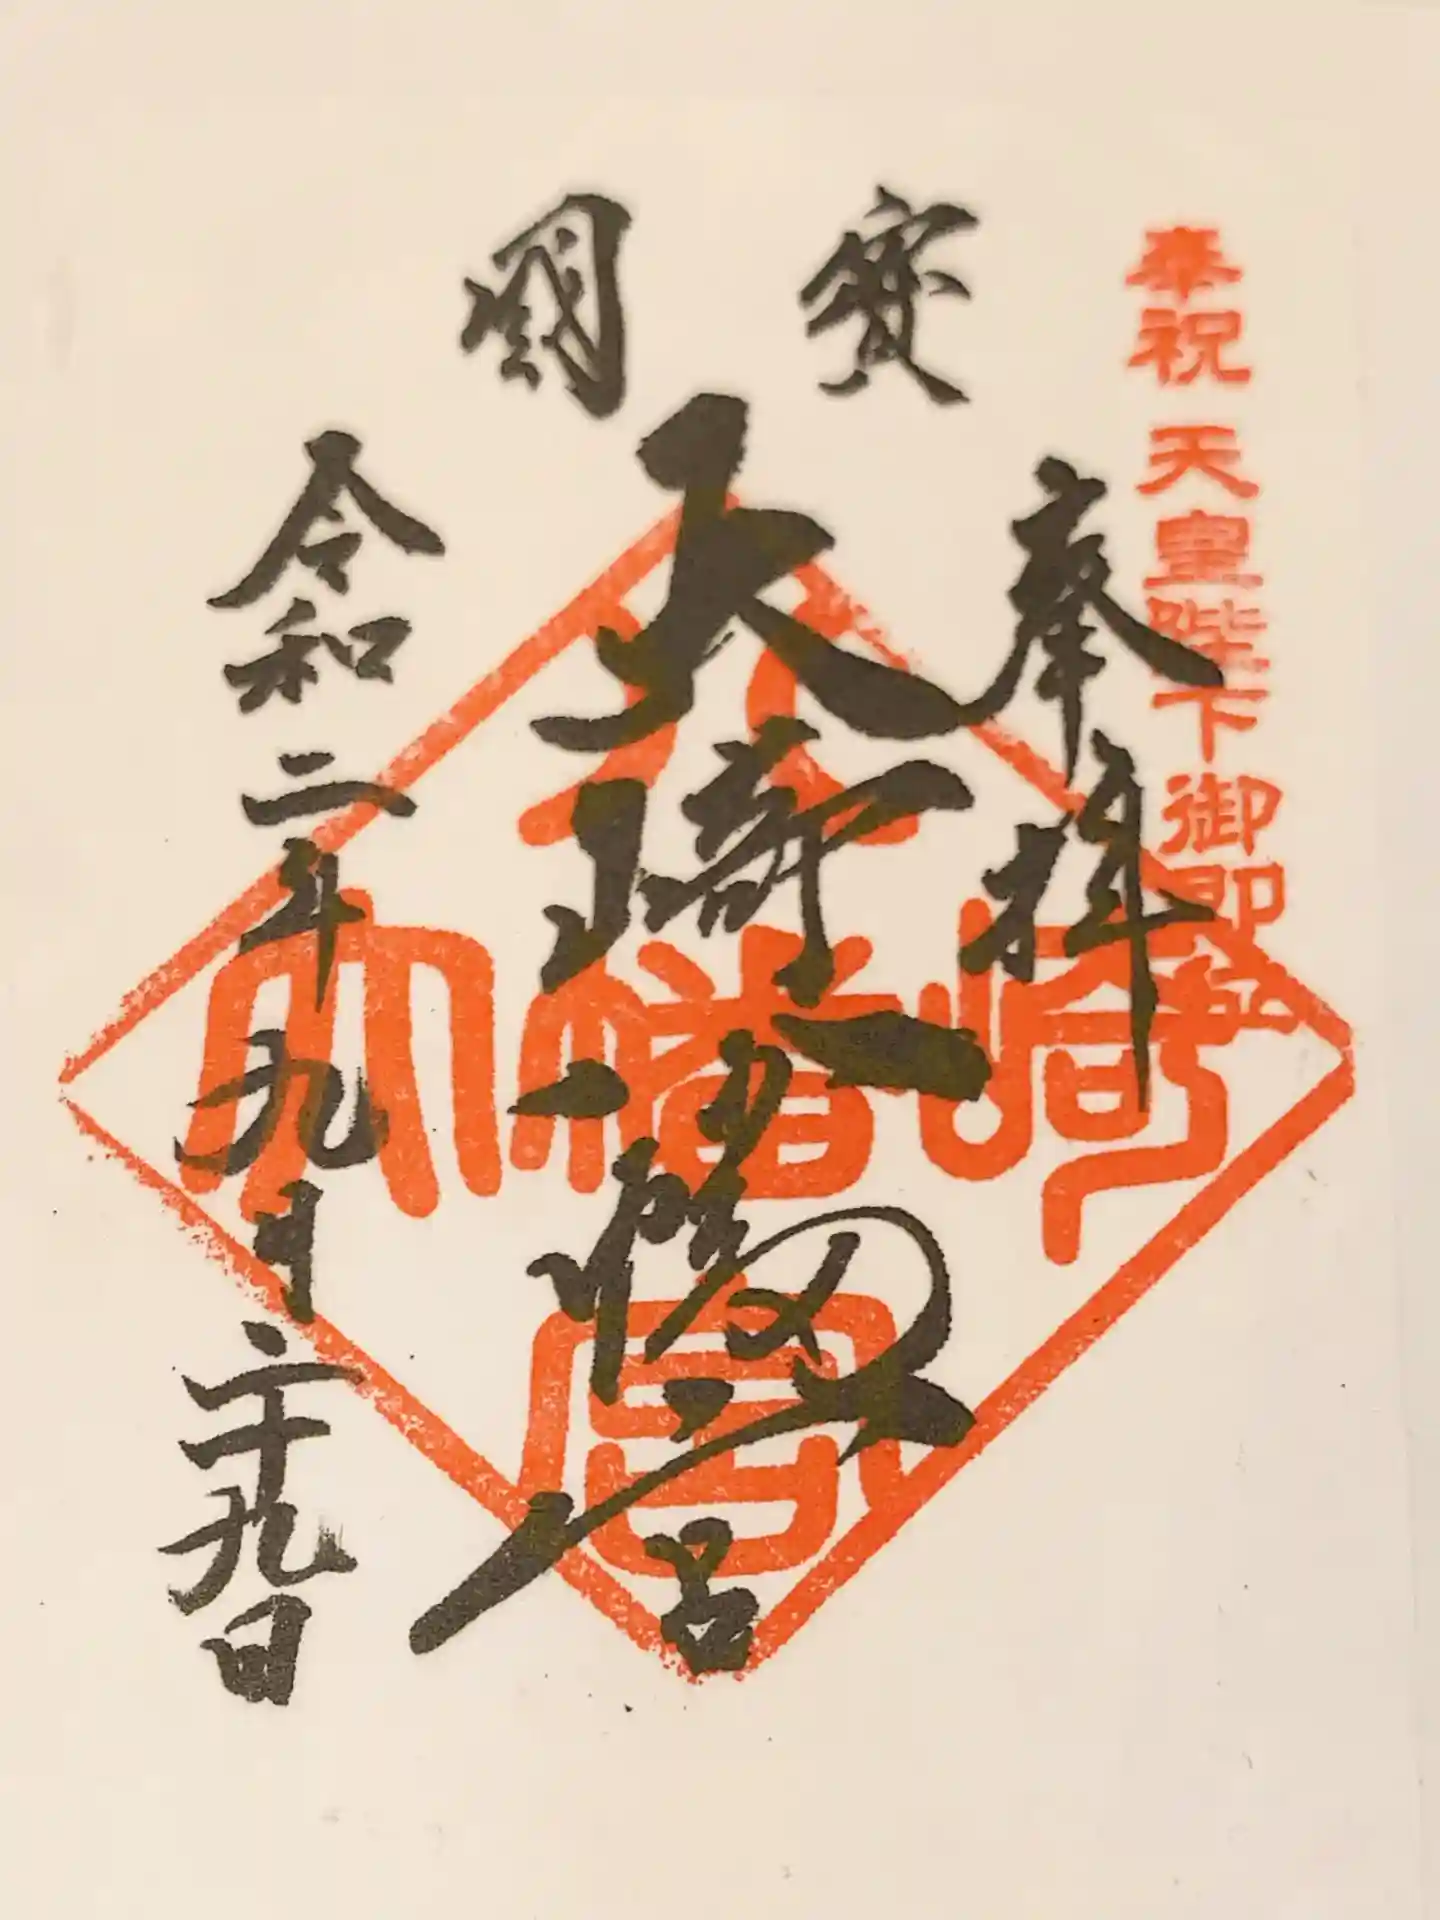 奉祝 天皇陛下御即位
國寳
奉拝
大崎八幡宮
大崎八幡宮
令和二年九月二十九日